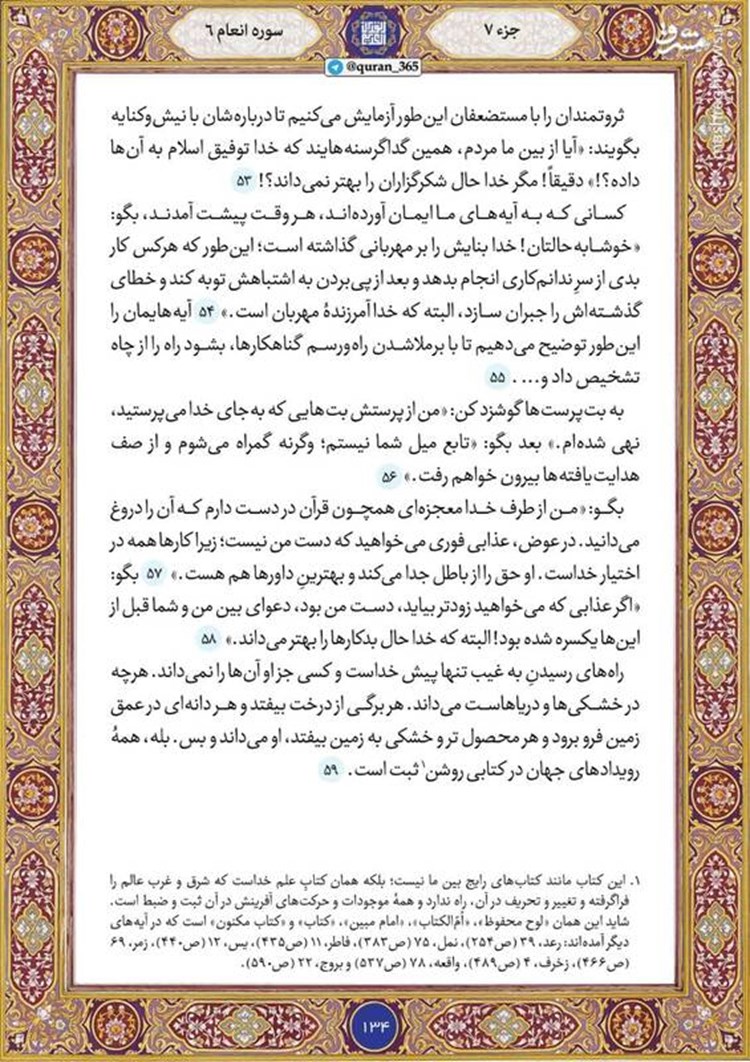 جزء ۷
سوره انعام ۶
@quran_365
ثروتمندان را با مستضعفان این‌طور آزمایش می‌کنیم تا درباره‌شان با نیش‌وکنایه
بگویند: «آیا از بین ما مردم، همین گداگرسنه‌هایند که خدا توفیق اسلام به آن‌ها
داده؟!» دقیقاً! مگر خدا حال شکرگزاران را بهتر نمی‌داند؟! ۵۳
کسانی که به آیه‌های ما ایمان آورده‌اند، هر وقت پیشت آمدند، بگو:
«خوشابه‌حالتان! خدا بنایش را بر مهربانی گذاشته است؛ این‌طور که هرکس کار
بدی از سرِ ندانم‌کاری انجام بدهد و بعد از پی‌بردن به اشتباهش توبه کند و خطای
گذشته‌اش را جبران سازد، البته که خدا آمرزندهٔ مهربان است.» ۵۴ آیه‌هایمان را
این‌طور توضیح می‌دهیم تا با برملاشدن راه‌ورسم گناهکارها، بشود راه را از چاه
تشخیص داد و... . ۵۵
به بت‌پرست‌ها گوشزد کن: «من از پرستش بت‌هایی که به‌جای خدا می‌پرستید،
نهی شده‌ام.» بعد بگو: «تابع میل شما نیستم؛ وگرنه گمراه می‌شوم و از صف
هدایت‌یافته‌ها بیرون خواهم رفت.» ۵۶
بگو: «من از طرف خدا معجزه‌ای همچون قرآن در دست دارم که آن را دروغ
می‌دانید. در عوض، عذابی فوری می‌خواهید که دست من نیست؛ زیرا کارها همه در
اختیار خداست. او حق را از باطل جدا می‌کند و بهترینِ داورها هم هست.» ۵۷ بگو:
«اگر عذابی که می‌خواهید زودتر بیاید، دست من بود، دعوای بین من و شما قبل از
این‌ها یکسره شده بود! البته که خدا حال بدکارها را بهتر می‌داند.» ۵۸
راه‌های رسیدنِ به غیب تنها پیش خداست و کسی جز او آن‌ها را نمی‌داند. هرچه
در خشکی‌ها و دریاهاست می‌داند. هر برگی از درخت بیفتد و هر دانه‌ای در عمق
زمین فرو برود و هر محصول تر و خشکی به زمین بیفتد، او می‌داند و بس. بله، همهٔ
رویدادهای جهان در کتابی روشن۱ ثبت است. ۵۹
۱. این کتاب مانند کتاب‌های رایج بین ما نیست؛ بلکه همان کتابِ علم خداست که شرق و غرب عالم را
فراگرفته و تغییر و تحریف در آن، راه ندارد و همهٔ موجودات و حرکت‌های آفرینش در آن ثبت و ضبط است.
شاید این همان «لوح محفوظ»، «اُمّ‌الکتاب»، «امام مبین»، «کتاب» و «کتاب مکنون» است که در آیه‌های
دیگر آمده‌اند: رعد، ۳۹ (ص۲۵۴)، نمل، ۷۵ (ص۳۸۳)، فاطر، ۱۱ (ص۴۳۵)، یس، ۱۲ (ص۴۴۰)، زمر، ۶۹
(ص۴۶۶)، زخرف، ۴ (ص۴۸۹)، واقعه، ۷۸ (ص۵۳۷) و بروج، ۲۲ (ص۵۹۰).
۱۳۴